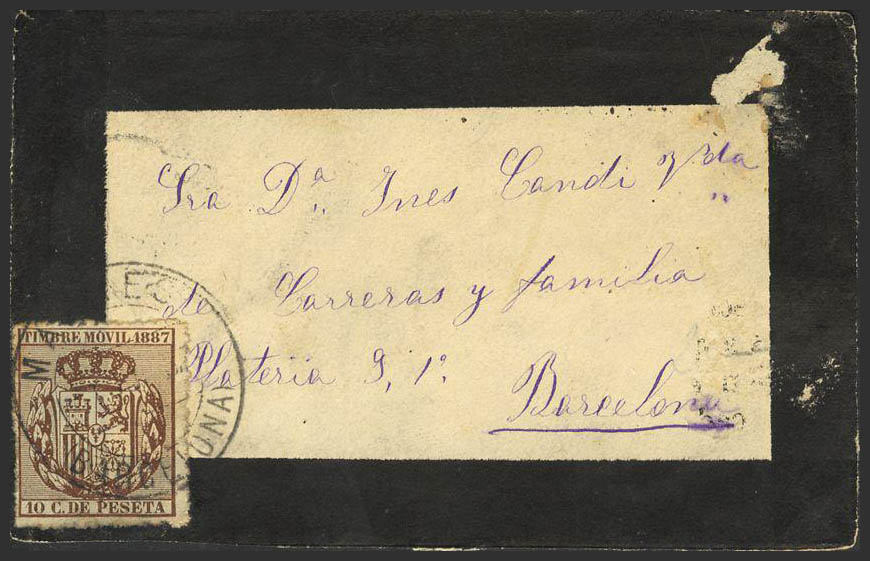 Sra Dª Ines Candi Vda
de Carreras y familia
Plateria 9, 1º
Barcelona
TIMBRE MÓVIL 1887
10 C. DE PESETA